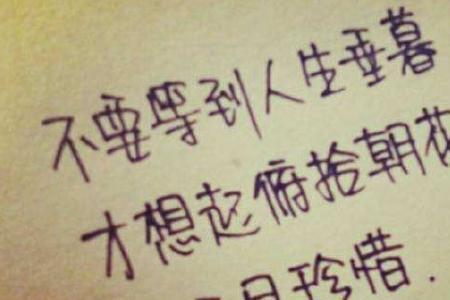 不要等到人生垂暮
才想起俯拾朝花
珍惜.